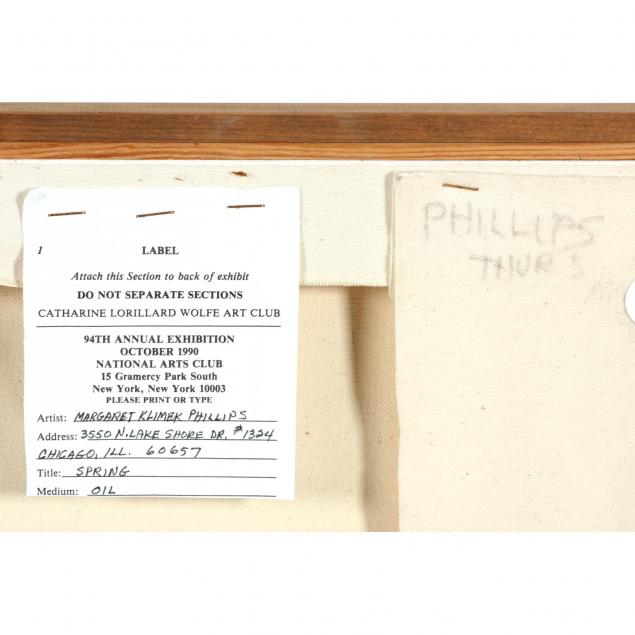 1 LABEL
Attach this Section to back of exhibit
DO NOT SEPARATE SECTIONS
CATHARINE LORILLARD WOLFE ART CLUB
94TH ANNUAL EXHIBITION
OCTOBER 1990
NATIONAL ARTS CLUB
15 Gramercy Park South
New York, New York 10003
PLEASE PRINT OR TYPE
Artist: MARGARET KLIMEK PHILLIPS
Address: 3550 N. LAKE SHORE DR. #1324
CHICAGO, ILL. 60657
Title: SPRING
Medium: OIL
PHILLIPS
THURS